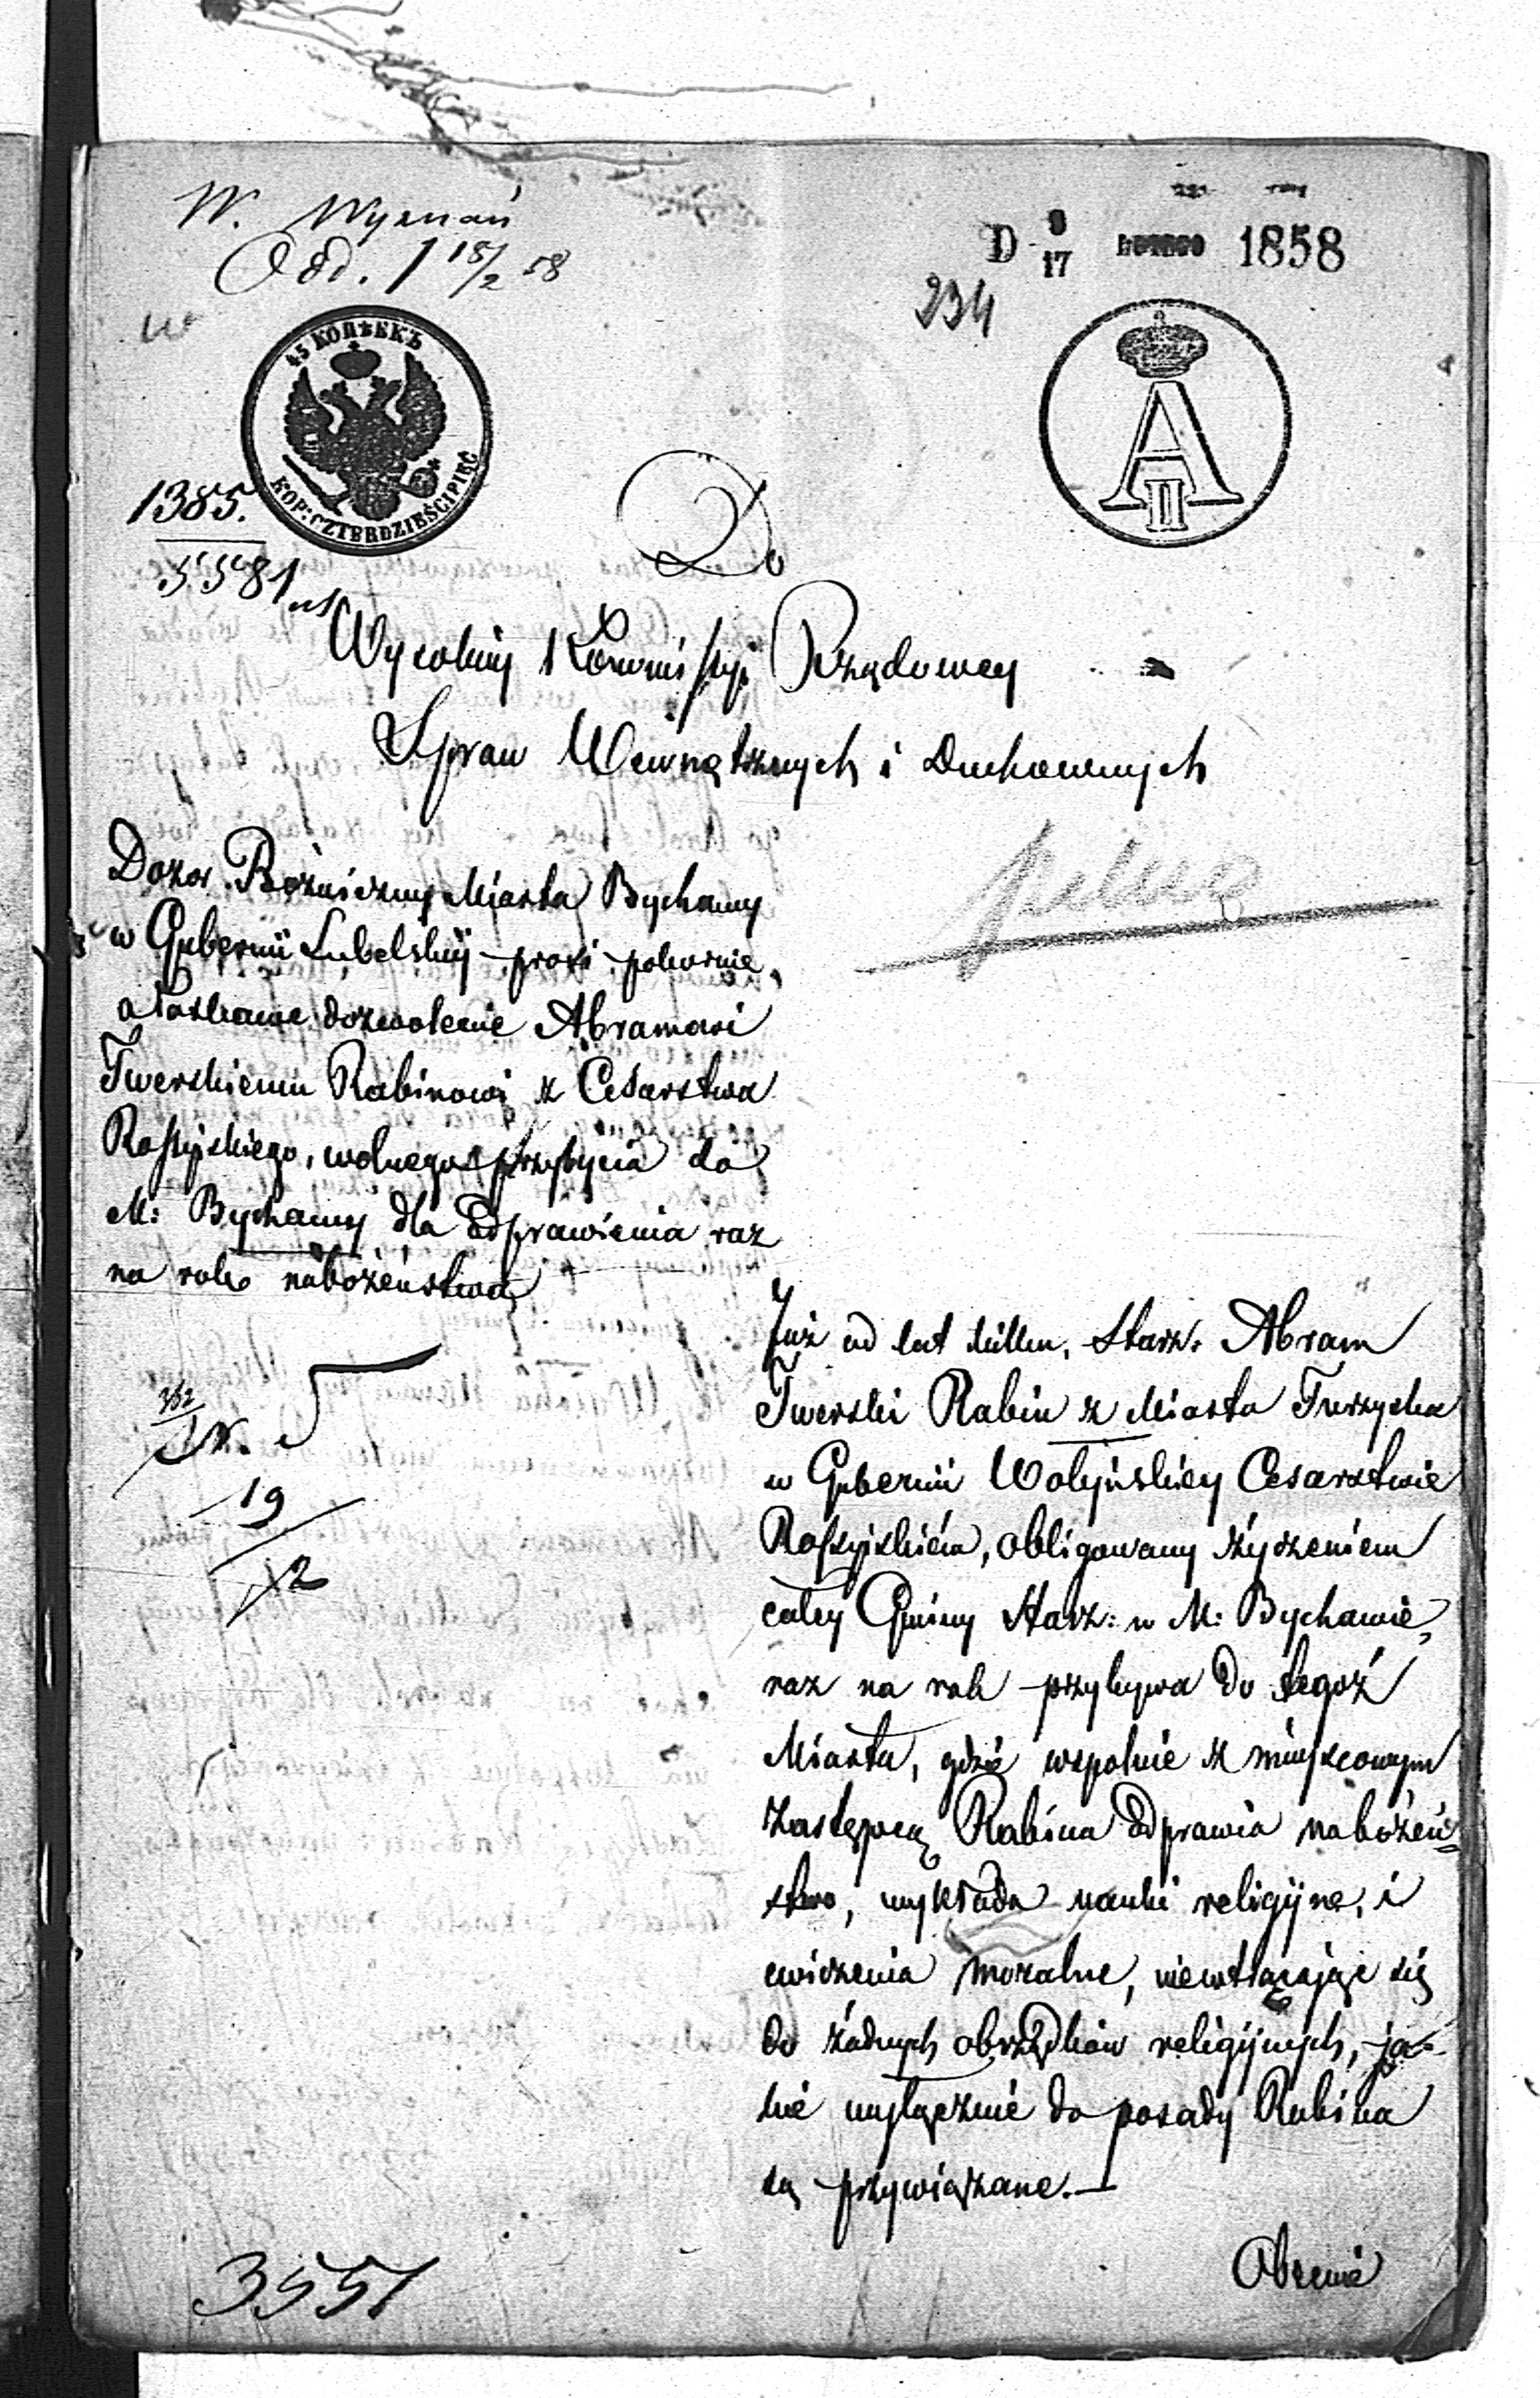 W. Wyznań
Odd. 1 18/2 58
D 17 LUTEGO 1858
234
45 КОПѢЕКЪ
KOP: CZTERDZIEŚCI PIĘĆ
A II
1385.
5581
Do
Wysokiey Kommissyi Rządowey
Spraw Wewnętrznych i Duchownych
Dozór Bóżniczny Miasta Bychawy
w Gubernii Lubelskiy prosi pokornie
o łaskawe dozwolenie Abramowi
Twerskiemu Rabinowi z Cesarstwa
Rossyiskiego, wolnego przybycia do
M: Bychawy dla odprawienia raz
na roko nabożeństwa
19
/2
Już od lat kilku, Starz. Abram
Twerski Rabin z Miasta Turzyska
w Gubernii Wołyńskiey Cesarstwie
Rossyiskiém, obligowany życzeniem
całey Gminy Starz: w M: Bychawie,
raz na rok przybywa do tegoż
Miasta, gdzie wspolnie z mieyscowym
Zastępcą Rabina odprawia nabożeń=
stwo, wykłada nauki religijne, i
cwiczenia moralne, niewtrącając się
do żadnych obrządków religijnych, ja=
kie wyłącznie do posady Rabina
są przywiązane.—
Obecnie
3551